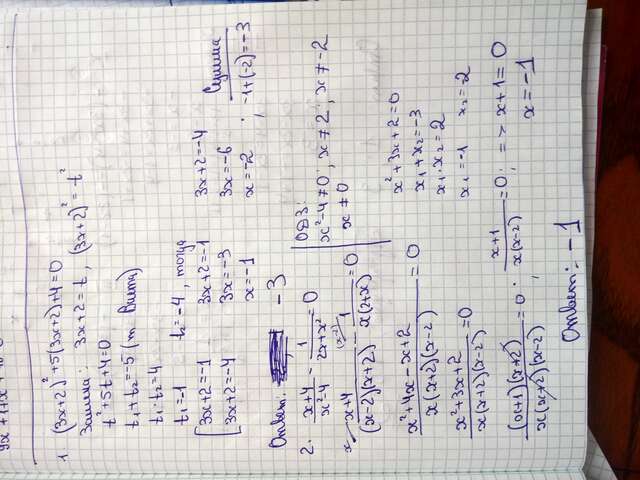 1
(3x+2)²+5(3x+2)+4=0
замена: 3x+2=t, (3x+2)²=t²
t²+5t+4=0
t₁+t₂=-5 (т. Виета)
t₁·t₂=4
t₁=-1 t₂=-4, тогда
3x+2=-1 3x+2=-1 3x+2=-4
3x+2=-4 3x=-3 3x=-6
x=-1 x=-2;
Сумма
-1+(-2)=-3
Ответ: -3
2. x+4/x²-4 - 1/2x+x² = 0
ОДЗ:
x²-4≠0; x≠2; x≠-2
x≠0
x x+4/(x-2)(x+2) - 1 (x-2)/x(2+x) = 0
x²+4x-x+2/x(x+2)(x-2) = 0
x²+3x+2/x(x+2)(x-2) = 0
x²+3x+2=0
x₁+x₂=-3
x₁·x₂=2
x₁=-1 x₂=-2
(x+1)(x+2)/x(x+2)(x-2) = 0; x+1/x(x-2) = 0; => x+1=0
x=-1
Ответ: -1